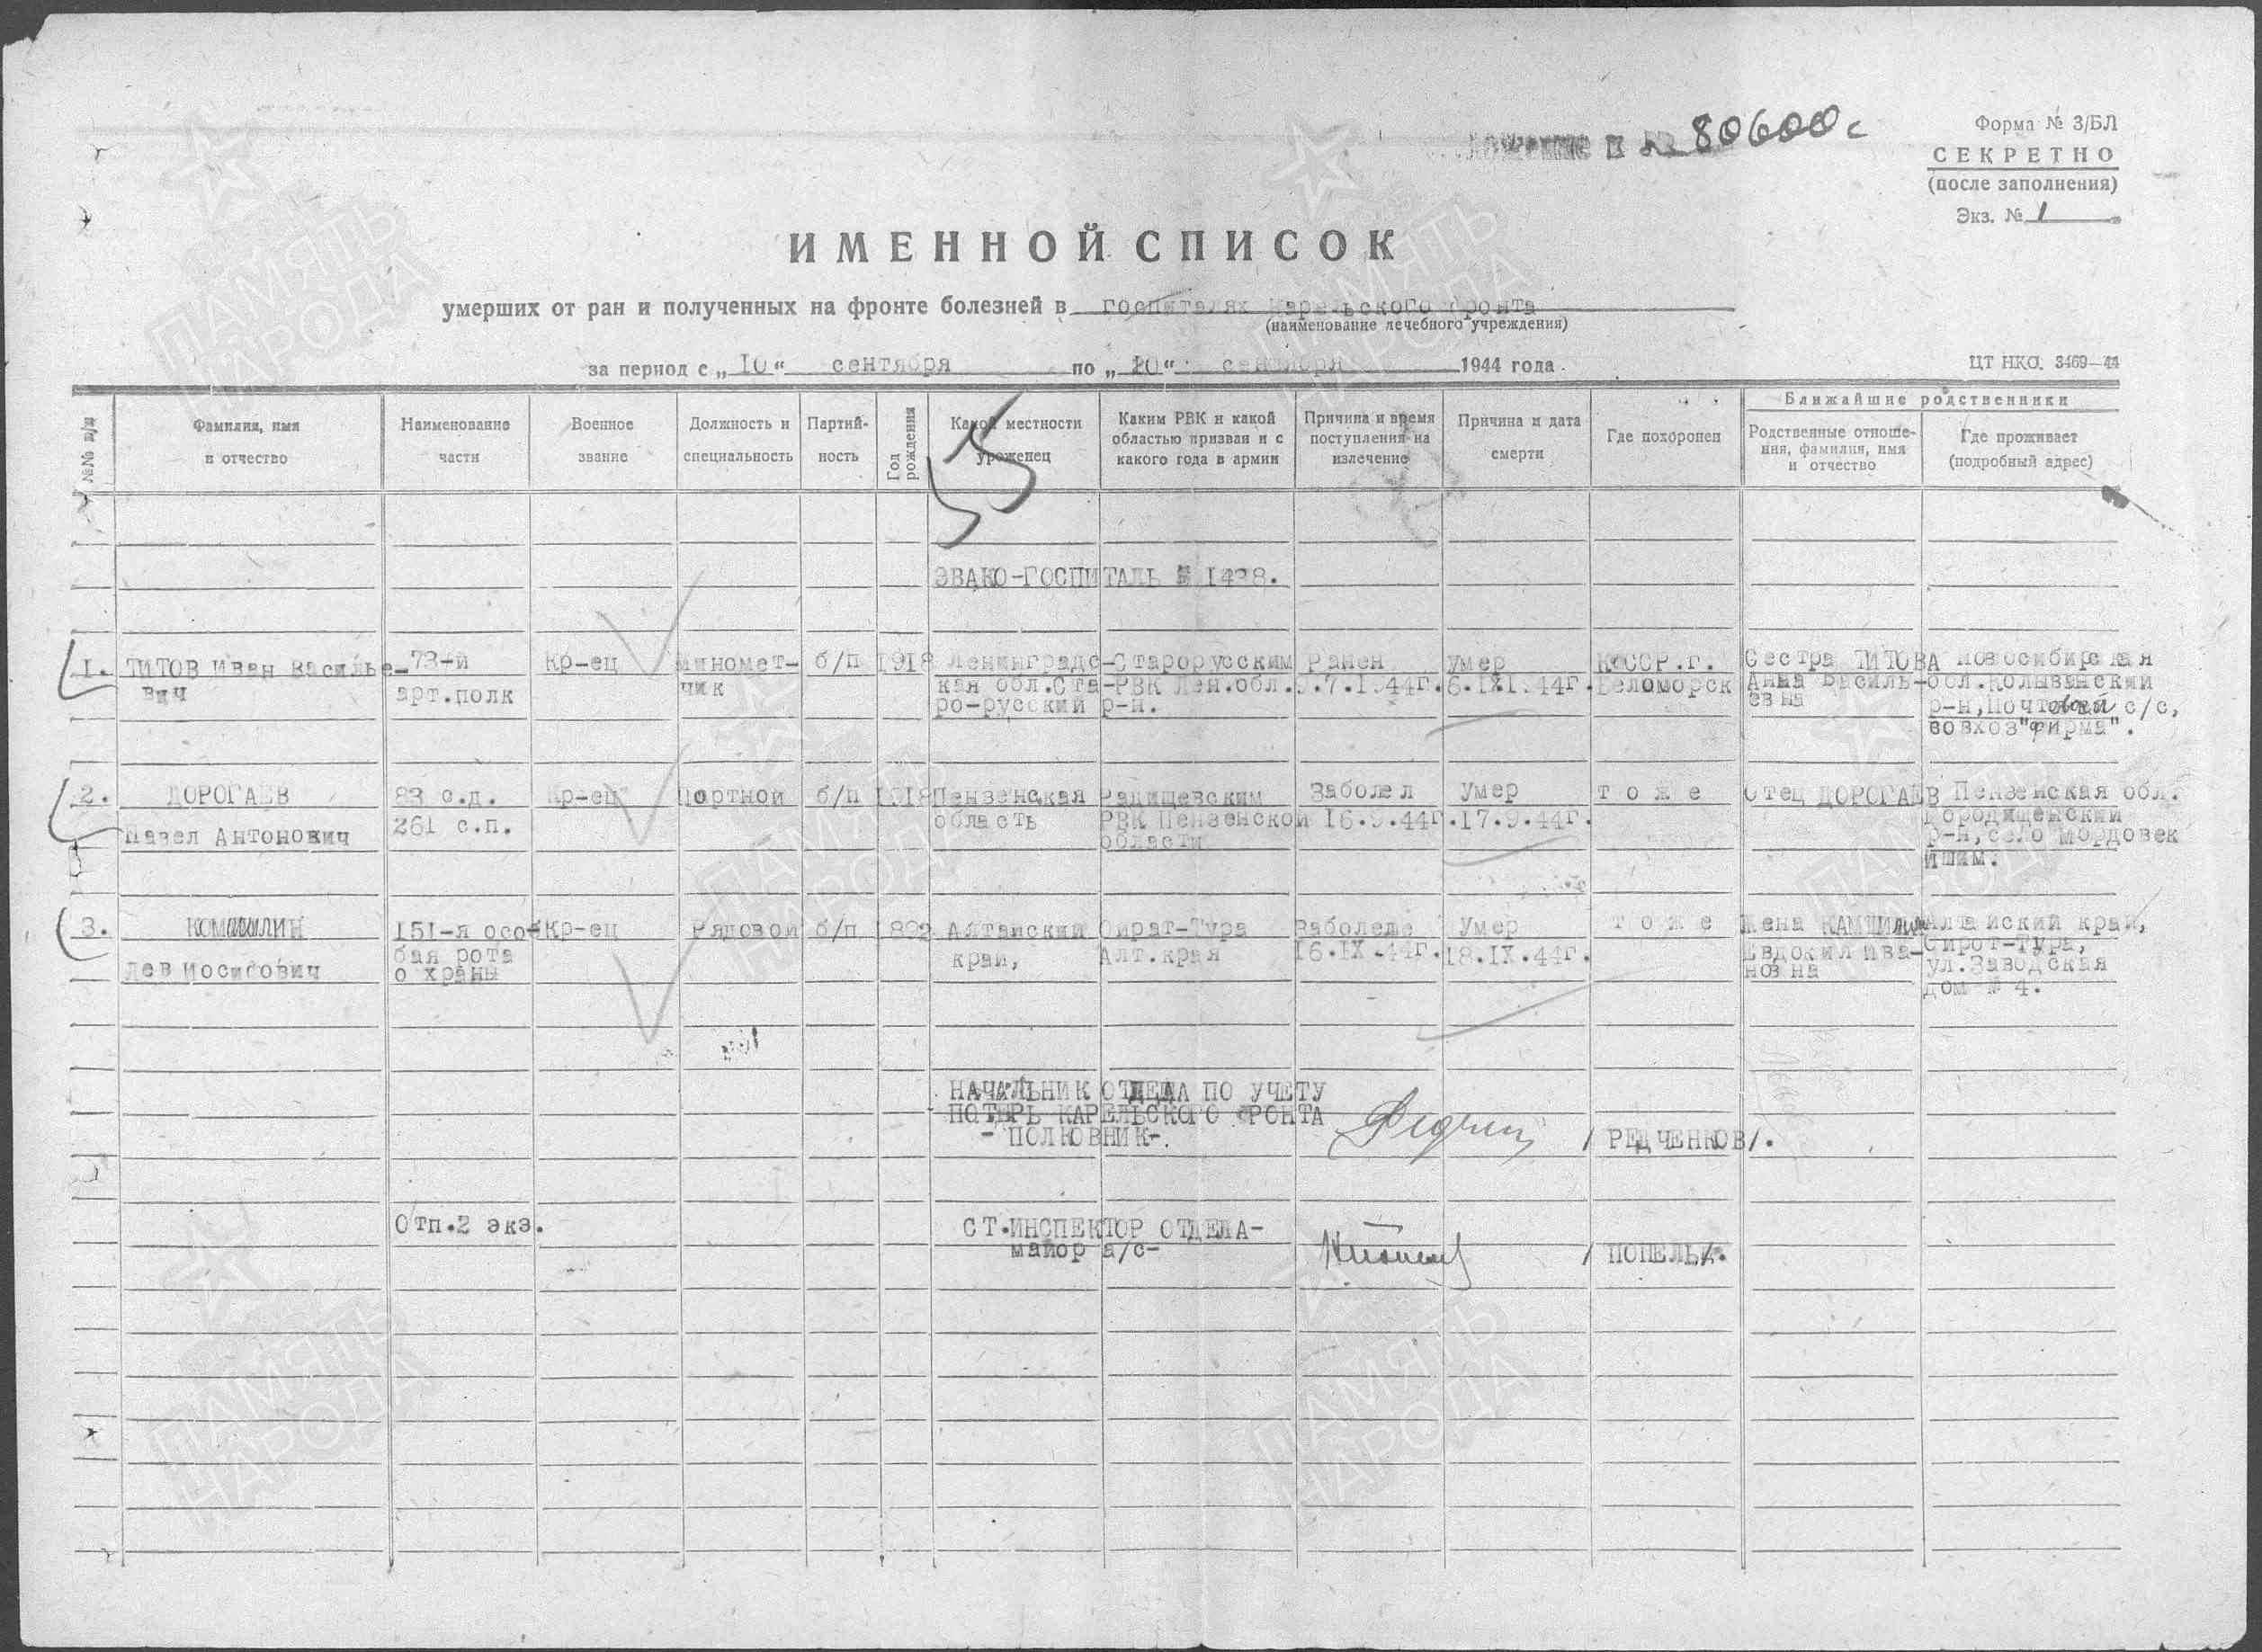 80600с
Форма № 3/БЛ
СЕКРЕТНО
(после заполнения)
Экз. № 1
ИМЕННОЙ СПИСОК
умерших от ран и полученных на фронте болезней в госпиталях Карельского фронта
(наименование лечебного учреждения)
за период с „10“ сентября по „20“ сентября 1944 года
ЦТ НКО. 3469—44
№№ п/п
Фамилия, имя и отчество
Наименование части
Военное звание
Должность и специальность
Партий-
ность
Год рождения
Какой местности уроженец
Каким РВК и какой областью призван и с какого года в армии
Причина и время поступления на излечение
Причина и дата смерти
Где похоронен
Ближайшие родственники
Родственные отноше-
ния, фамилия, имя и отчество
Где проживает (подробный адрес)
55
ЭВАКО-ГОСПИТАЛЬ № 1438.
1. ТИТОВ Иван Василье- 73-й Кр-ец Миномет- б/п 1918 Ленинградс- Старорусским Ранен Умер КФССР.г. Сестра ТИТОВА Новосибирская
вич арт.полк чик кая обл.Ста- РВК Лен.обл. .7.1944г. 6.IX.1944г. Беломорск Анна Василь- обл.Колыванский
ро-русский р-н. евна р-н, с/с,
вовхоз"Фирма".
2. ДОРОГАЕВ 83 с.д. Кр-ец Портной б/п 1918 Пензенская Радищевским Заболел Умер тоже Отец ДОРОГАЕВ Пензенская обл.
261 с.п. область РВК Пензенской 16.9.44г. 17.9.44г. Городищенский
Павел Антонович области р-н,село Мордовек
Ишим.
3. КОМШИЛИН 151-я особ- Кр-ец Рядовой б/п 1892 Алтайский Ойрат-Тура Заболеле Умер тоже Жена КАМШИЛИНА Алтайский край,
Лев Иосифович бая рота край, Алт.края 16.IX.44г. 18.IX.44г. Евдокил Ива- Ойрот-Тура,
охраны новна ул.Заводская
дом № 4.
НАЧАЛЬНИК ОТДЕЛА ПО УЧЕТУ
ПОТЕРЬ КАРЕЛЬСКОГО ФРОНТА
- ПОЛКОВНИК-. /РЕДЧЕНКОВ/.
Отп.2 экз. СТ.ИНСПЕКТОР ОТДЕЛА-
майор а/с- /ПОПЕЛЬ/.
ПАМЯТЬ
НАРОДА